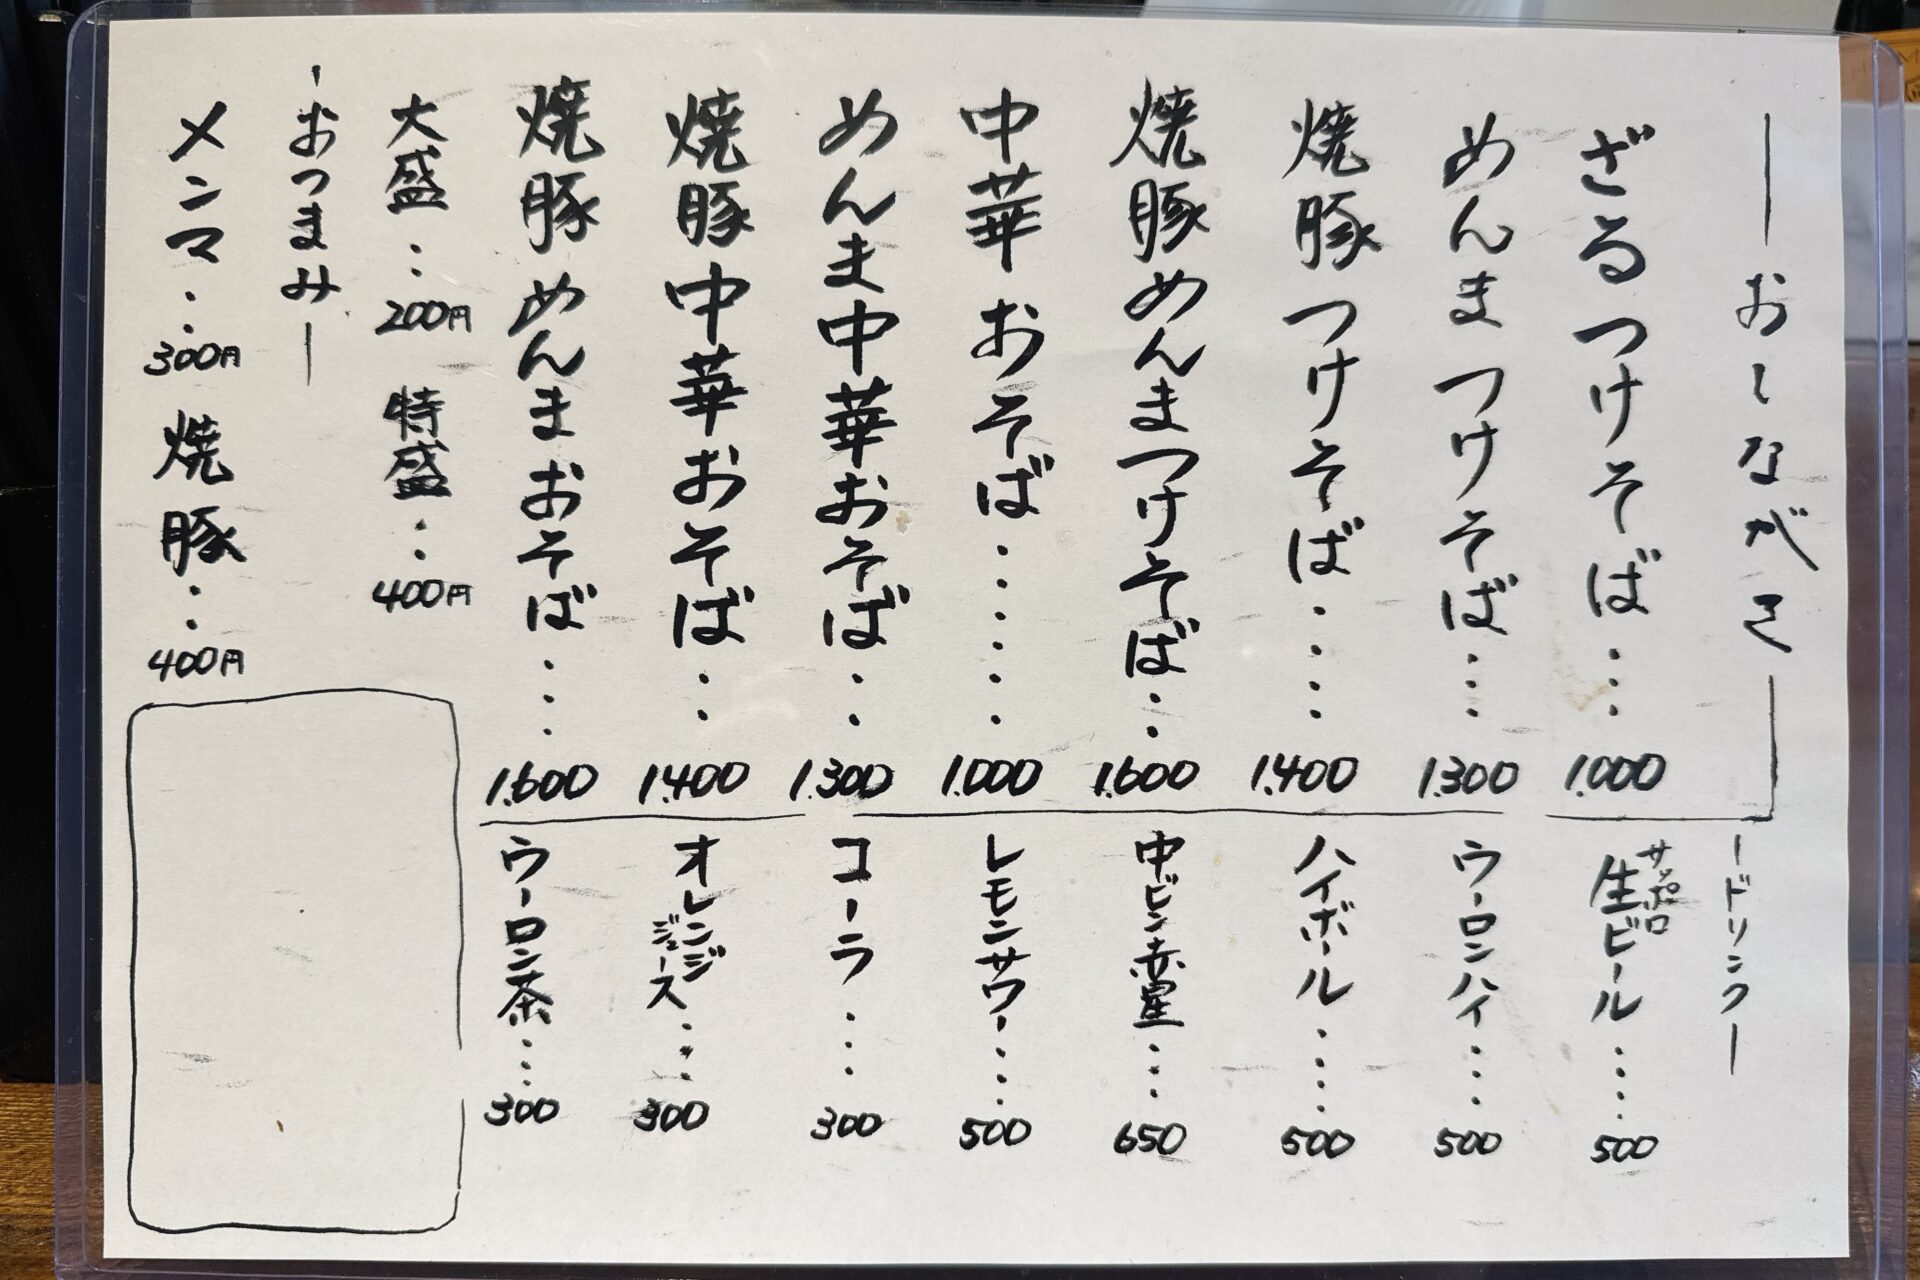 ―おしながき―
ざるつけそば・・・1.000
めんまつけそば・・・1.300
焼豚つけそば・・・・1.400
焼豚めんまつけそば・・1.600
中華おそば・・・・・1.000
めんま中華おそば・・1.300
焼豚中華おそば・・1.400
焼豚めんまおそば・・・1.600
大盛・・200円 特盛・・400円
―おつまみ―
メンマ・・300円 焼豚・・400円
―ドリンク―
サッポロ
生ビール・・・・500
ウーロンハイ・・・500
ハイボール・・・・500
中ビン赤星・・・650
レモンサワー・・・500
コーラ・・・300
オレンジジュース・・・300
ウーロン茶・・・300